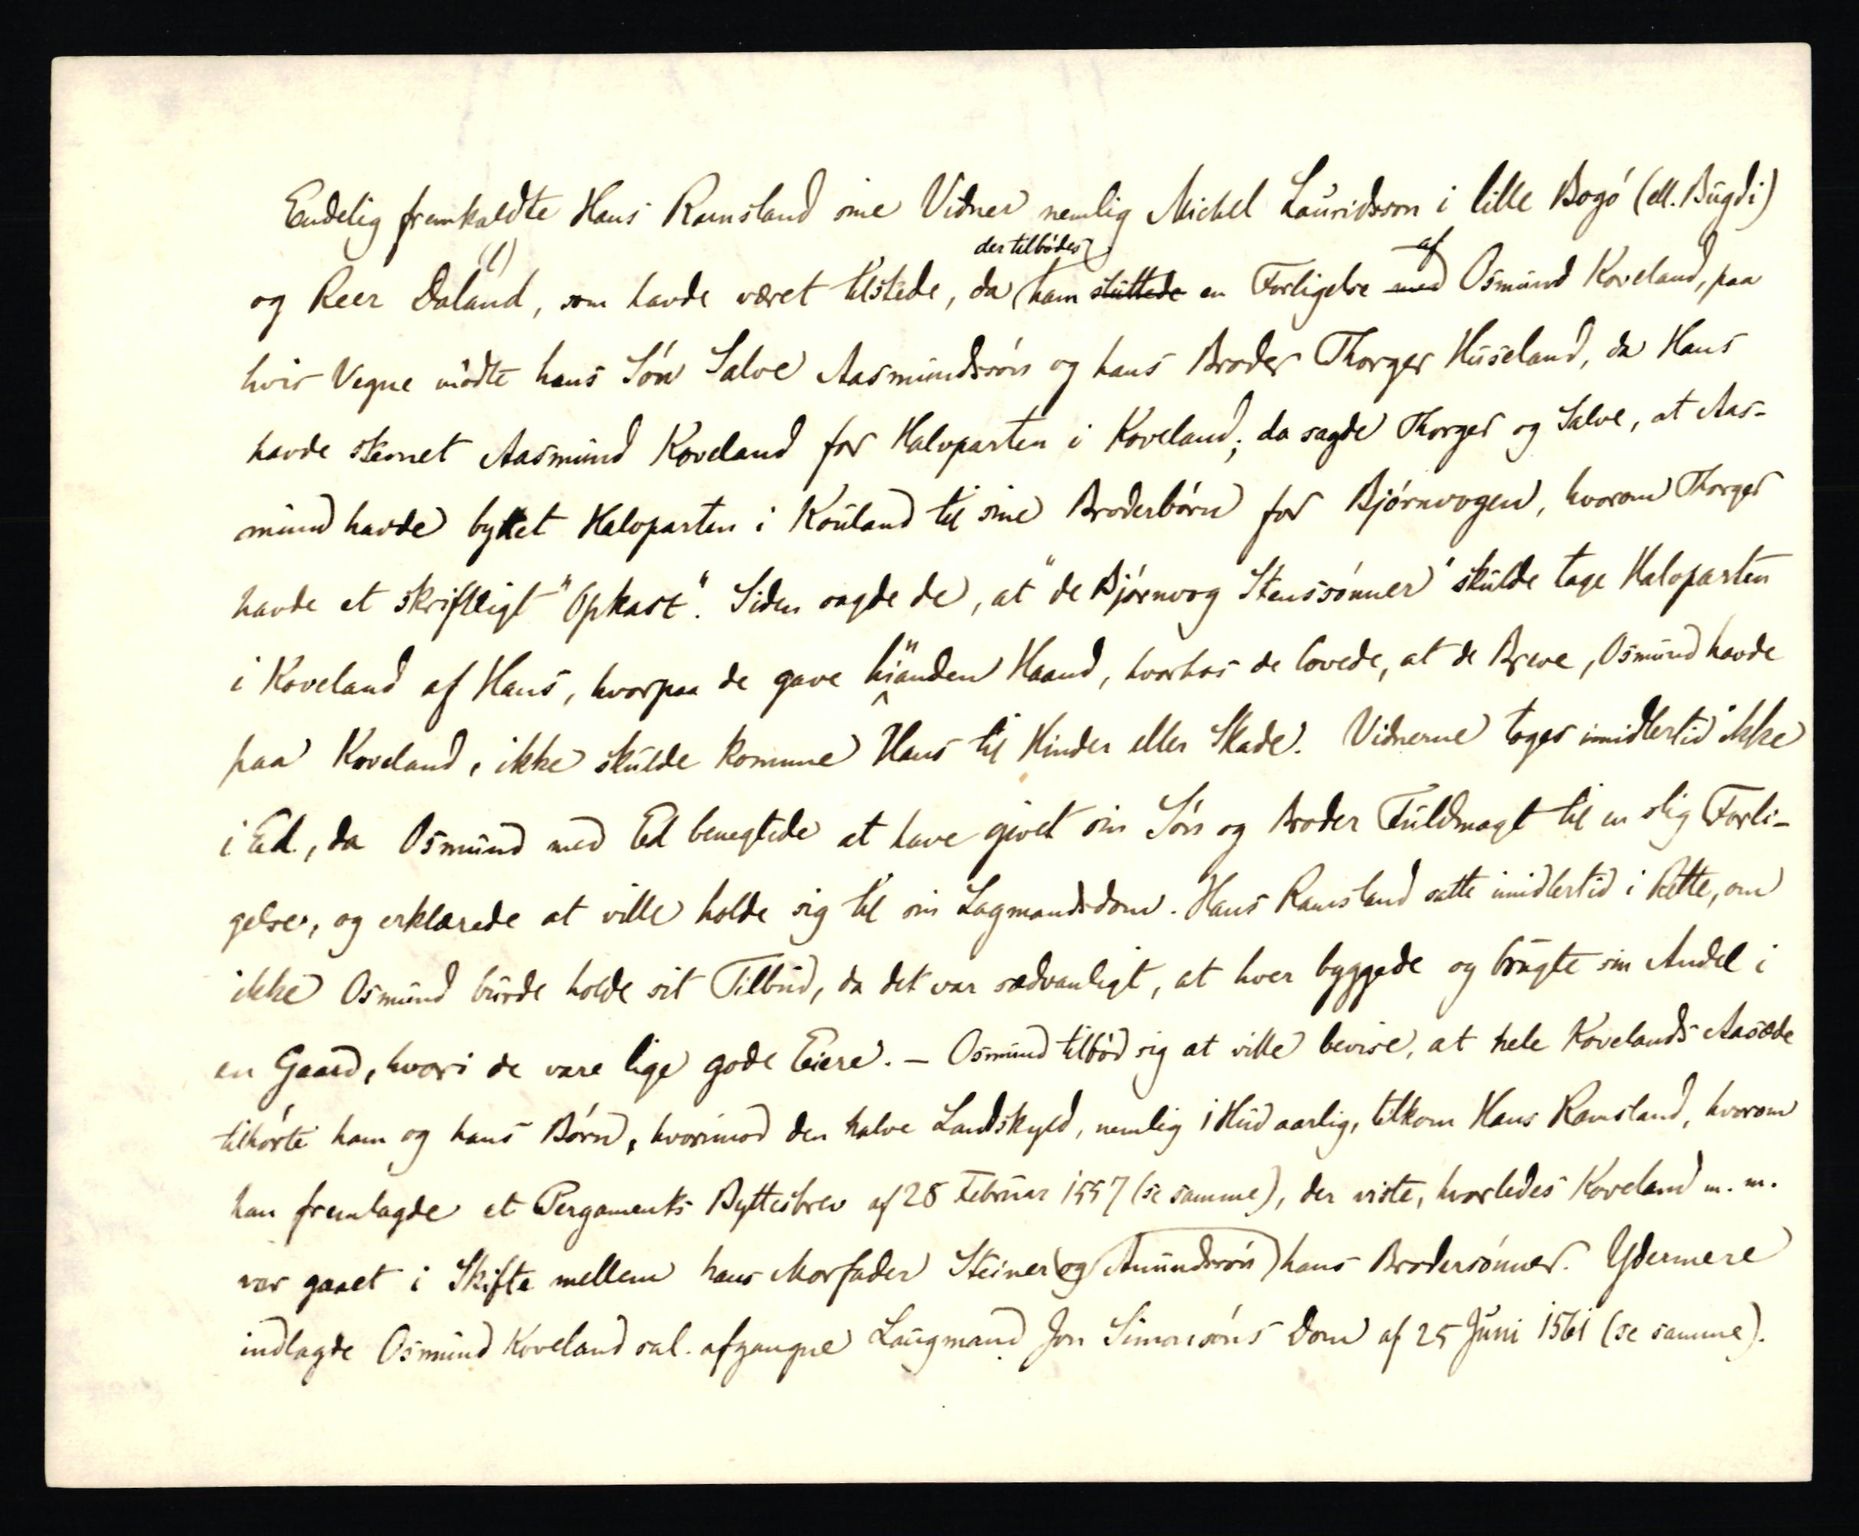 Endelig fremkaldte Hans Ramsland sine Vidner nemlig Michel Lauridsson i lille Bogö (ell. Bugdi)
og Reer Daland (!), som havde været tilstede, da der tilbödes ham sluttede en Forligelse med af Osmund Koveland, paa
hvis Vegne mödte hans Sön Salve Aasmundssön og hans Broder Thorger Huseland, da Hans
havde stevnet Aasmund Koveland for Halvparten i Koveland; da sagde Thorger og Salve, at Aas-
mund havde byttet Halvparten i Kouland til sine Broderbörn for Björnvogen, hvorom Thorger
havde et skriftligt "Opkast". Siden sagde de, at "de Björnvog Stenssönner" skulde tage Halvparten
i Koveland af Hans, hvorpaa de gave hinanden Haand, hvorhos de lovede, at de Breve, Osmund havde
paa Koveland, ikke skulde komme Hans til Hinder eller Skade. Vidnerne toges imidlertid ikke
i Ed, da Osmund med Ed benegtede at have givet sin Sön og Broder Fuldmagt til en slig Forli-
gelse, og erklærede at ville holde sig til sin Lagmandsdom. Hans Ramsland satte imidlertid i Rette, om
ikke Osmund burde holde sit Tilbud, da det var sædvanligt, at hver byggede og brugte sin Andel i
en Gaard, hvori de vare lige gode Eiere. – Osmund tilböd sig at ville bevise, at hele Kovelands Aasæde
tilhörte ham og hans Börn, hvorimod den halve Landskyld, nemlig 1 Hud aarlig, tilkom Hans Ramsland, hvorom
han fremlagde et Pergaments Byttesbrev af 28 Februar 1557 (se samme), der viste, hvorledes Koveland m. m.
var gaaet i Skifte mellem hans Morfader Steiner og Amundssön hans Brodersönner. Ydermere
indlagde Osmund Koveland sal. afgangne Laugmand Jon Simonsöns Dom af 25 Juni 1561 (se samme).